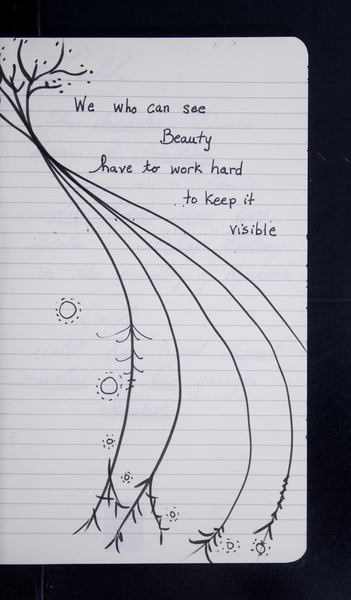 We who can see
Beauty
have to work hard
to keep it
visible